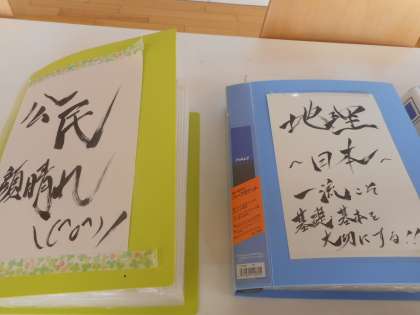 公民
顔晴れ
\(^o^)/
地理
～日本～
一流こそ
基礎基本を
大切にする!!